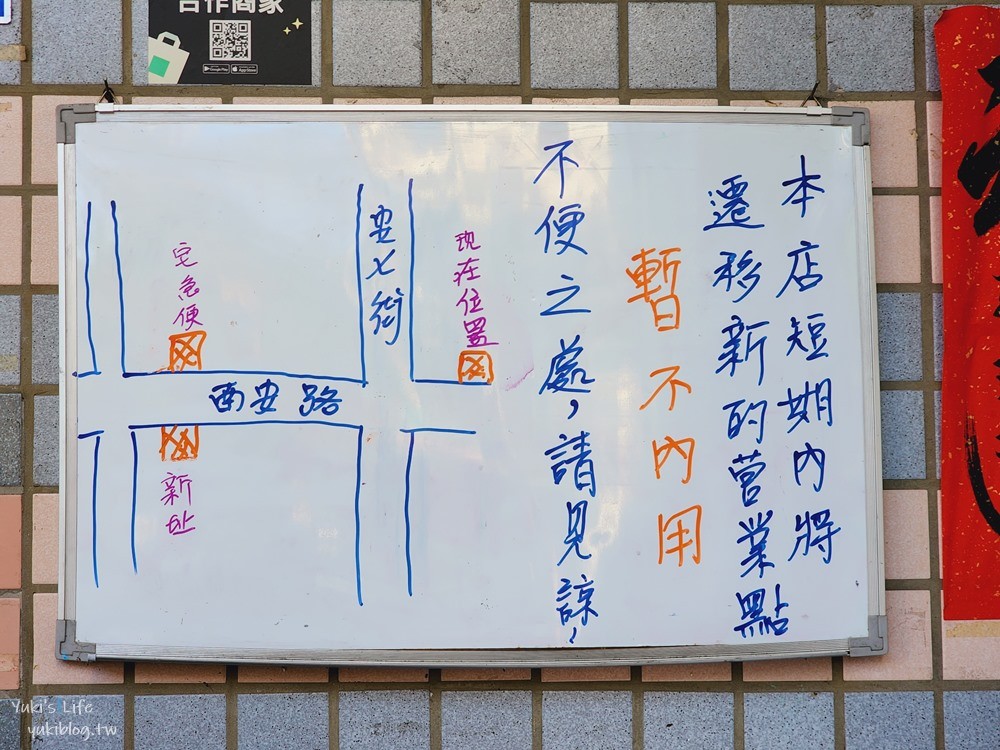 合作商家
本店短期內將
遷移新的營業點
暫不內用
不便之處，請見諒，
現在位置
安七街
宅急便
西安路
新址
Yuki's Life
yukiblog.tw